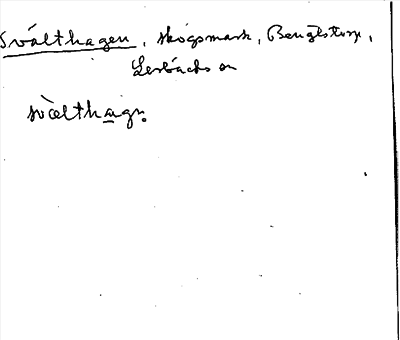 Svälthagen, skogsmark, Bengtstorp,
Lerbäcks sn
svæ̀lthagn.